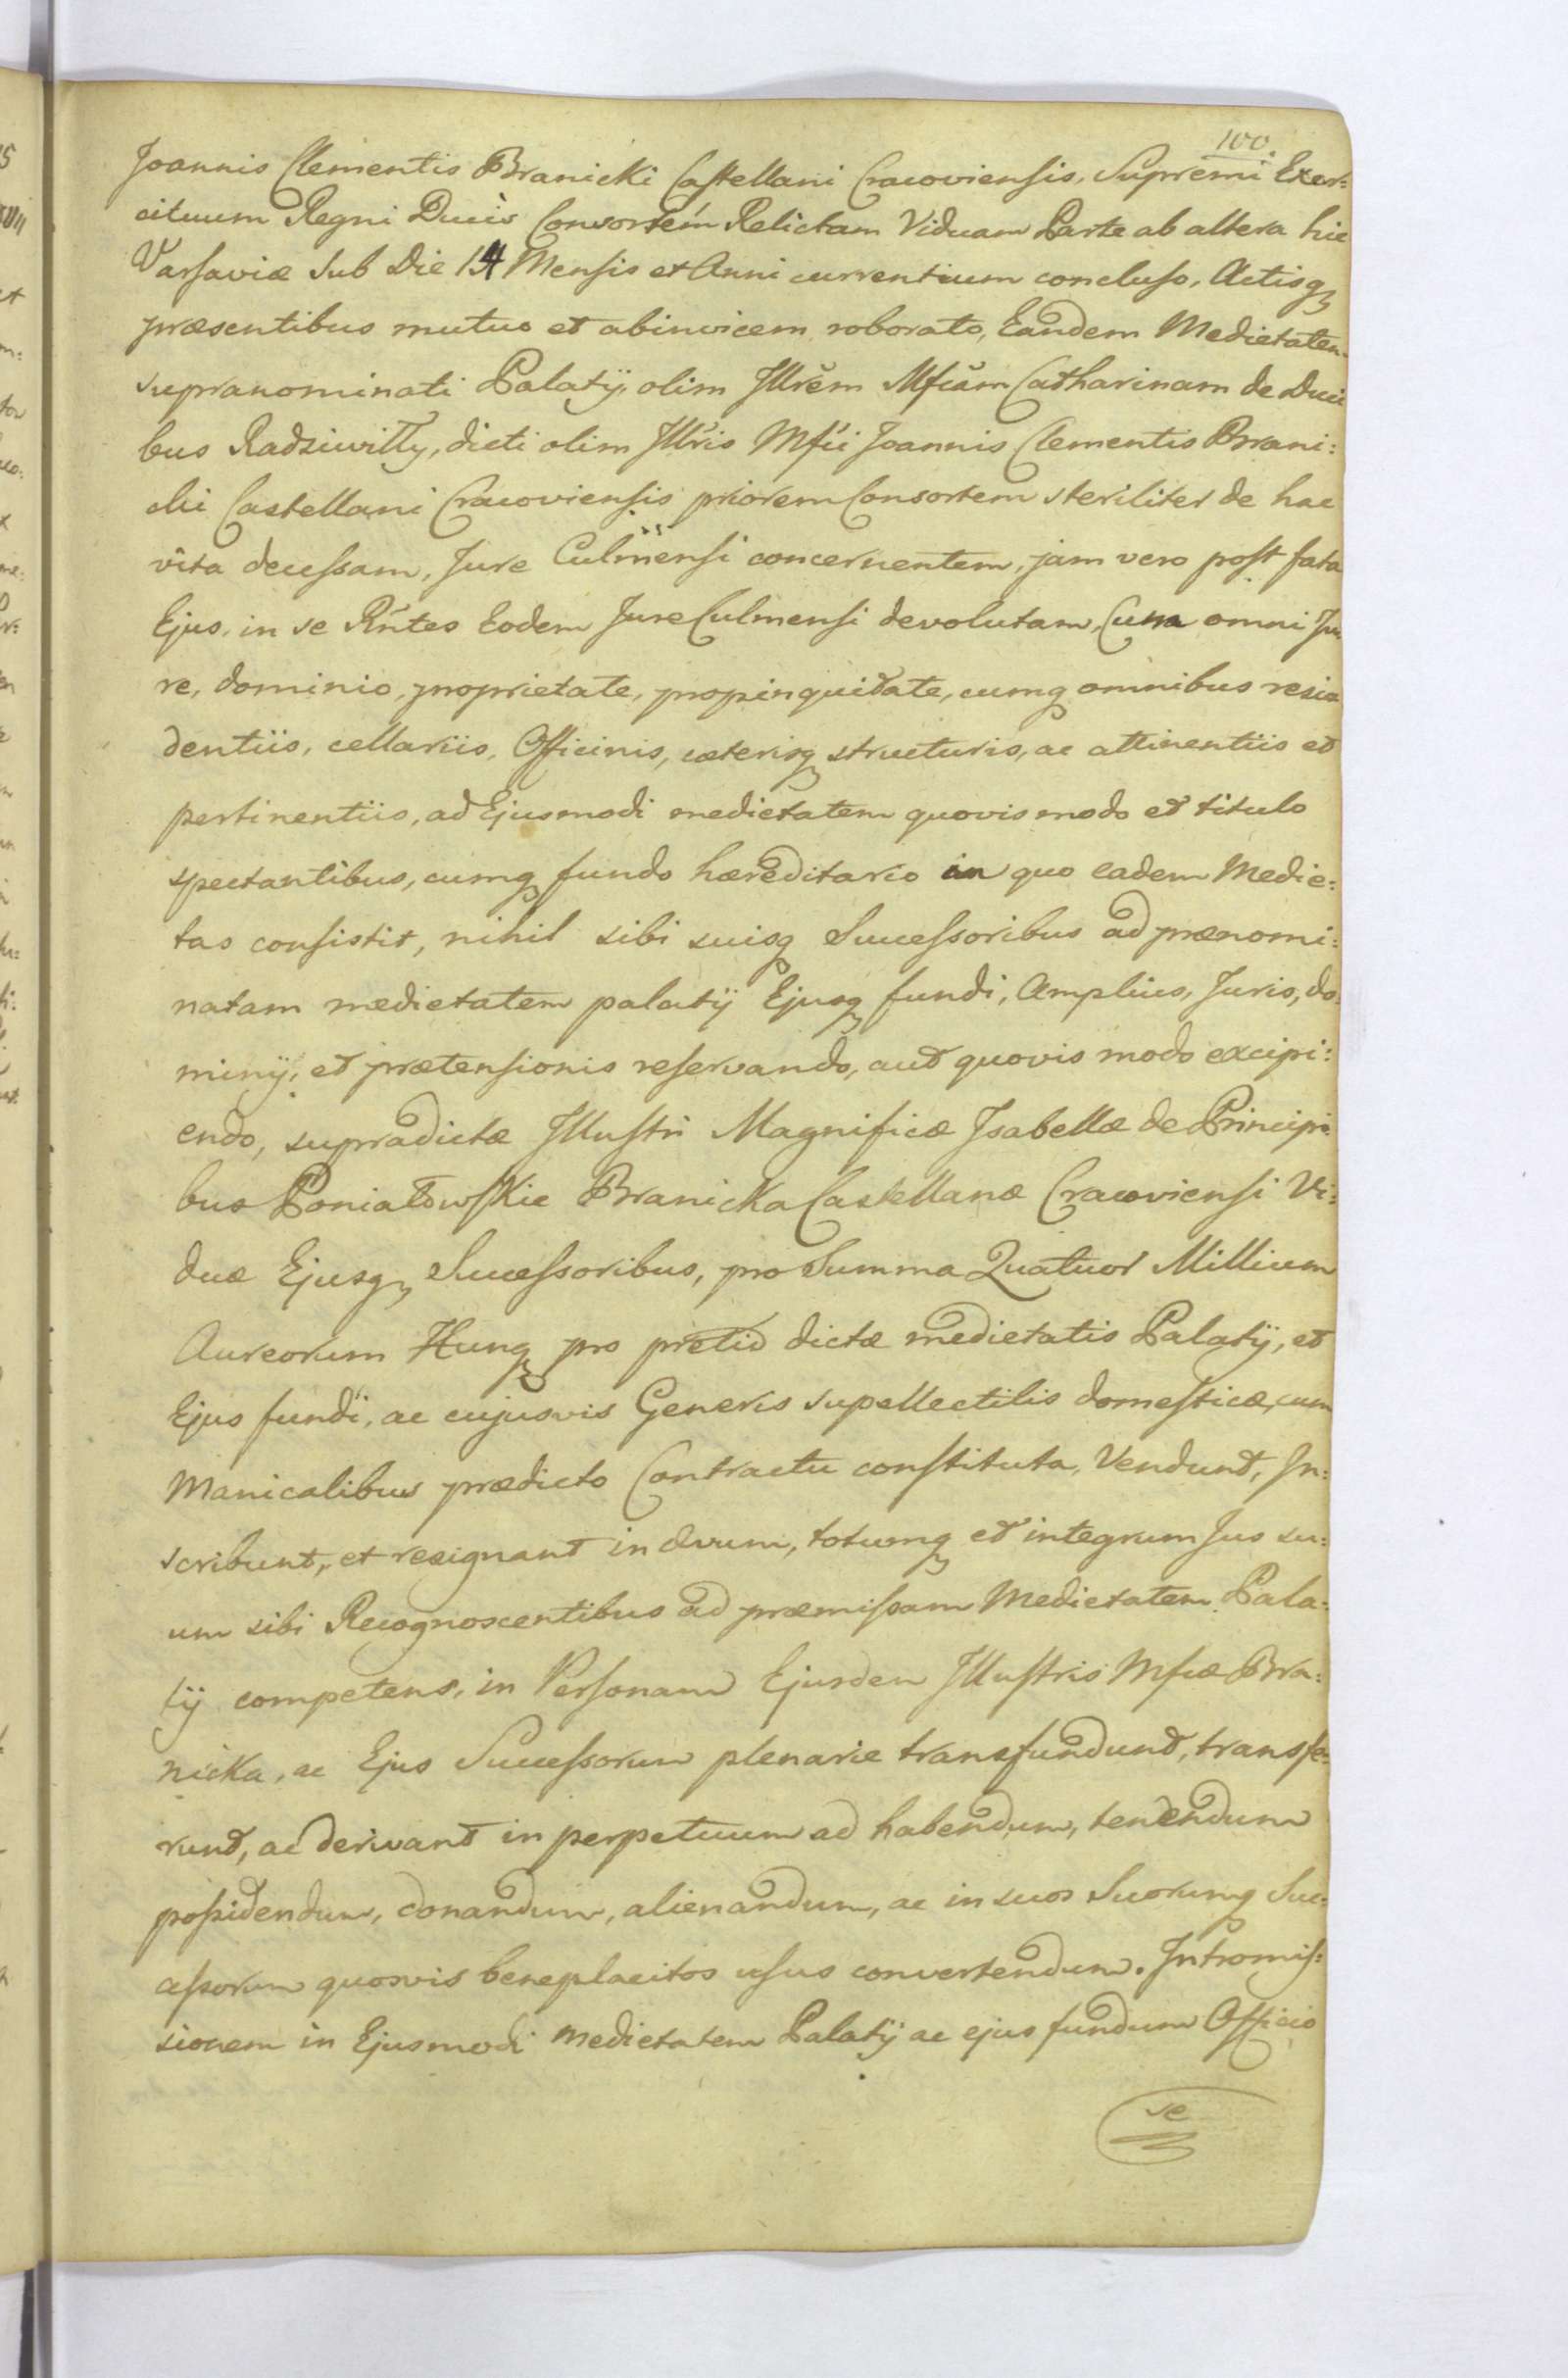 100.
Joannis Clementis Branicki Castellani Cracoviensis, Supremi Exer:
cituum Regni Ducis Consortem Relictam Viduam Parte ab altera hic
Varsaviæ sub Die 14 Mensis et Anni currentium concluso, Actisq
præsentibus mutuo et abinvicem roborato, Eandem Medietatem
supranominati Palatij, olim Jllrem Mficam Catharinam de Duci
bus Radziwilly, dicti olim Jllris Mfici Joannis Clementis Brani:
cki Castellani Cracoviensis priorem Consortem steriliter de hac
vita decessam, Jure Culmensi concernentem, jam vero post fata
Ejus, in se Rntes Eodem Jure Culmensi devolutam, Cum omni Ju
re, dominio, proprietate, propinquitate, cumq omnibus resi
dentiis, cellariis, Officinis, cæterisq structuris, ac attinentiis et
pertinentiis, ad Ejusmodi medietatem quovis modo et titulo
spectantibus, cumq fundo hæreditario in quo eadem Medie:
tas consistit, nihil sibi suisq Successoribus ad prænomi:
natam medietatem palatij Ejusq fundi, Amplius, Juris, do
minij, et prætensionis reservando, aut quovis modo excipi:
endo, supradictæ Jllustri Magnificæ Jsabellæ de Principi
bus Poniatowskie Branicka Castellanæ Cracoviensi Vi:
duæ Ejusq Successoribus, pro Summa Quatuor Millium
Aureorum Hung pro pretio dictæ medietatis Palatij, et
Ejus fundi, ac cujusvis Generis supellectilis domesticæ, cum
Manicalibus prædicto Contractu constituta, Vendunt, In:
scribunt, et resignant in ævum, totumq et integrum Jus su:
um sibi Recognoscentibus ad præmissam Medietatem Pala:
tij competens, in Personam Ejusdem Jllustris Mficæ Bra:
nicka, ac Ejus Successorum plenarie transfundunt, transfe:
runt, ac derivant in perpetuum ad habendum, tenendum
possidendum, donandum, alienandum, ac in suos Suorumq Suc:
cessorum quosvis beneplacitos usus convertendum. Intromis:
sionem in Ejusmodi Medietatem Palatij ac ejus fundum Officio
se